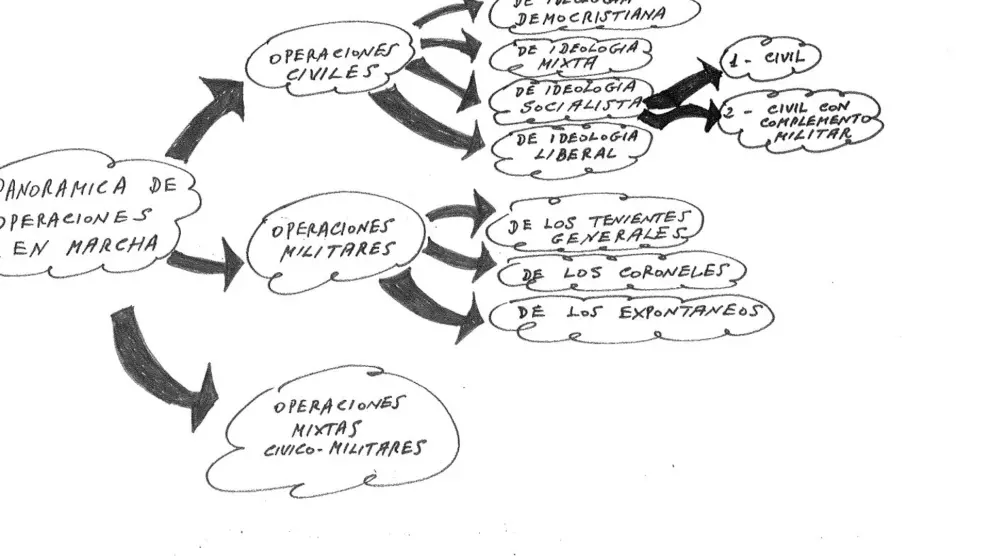 DE IDEOLOGIA
DEMOCRISTIANA
OPERACIONES
CIVILES
DE IDEOLOGIA
MIXTA
DE IDEOLOGIA
SOCIALISTA
DE IDEOLOGIA
LIBERAL
1 - CIVIL
2 - CIVIL CON
COMPLEMENTO
MILITAR
PANORAMICA DE
OPERACIONES
EN MARCHA
OPERACIONES
MILITARES
DE LOS TENIENTES
GENERALES
DE LOS CORONELES
DE LOS EXPONTANEOS
OPERACIONES
MIXTAS
CIVICO-MILITARES